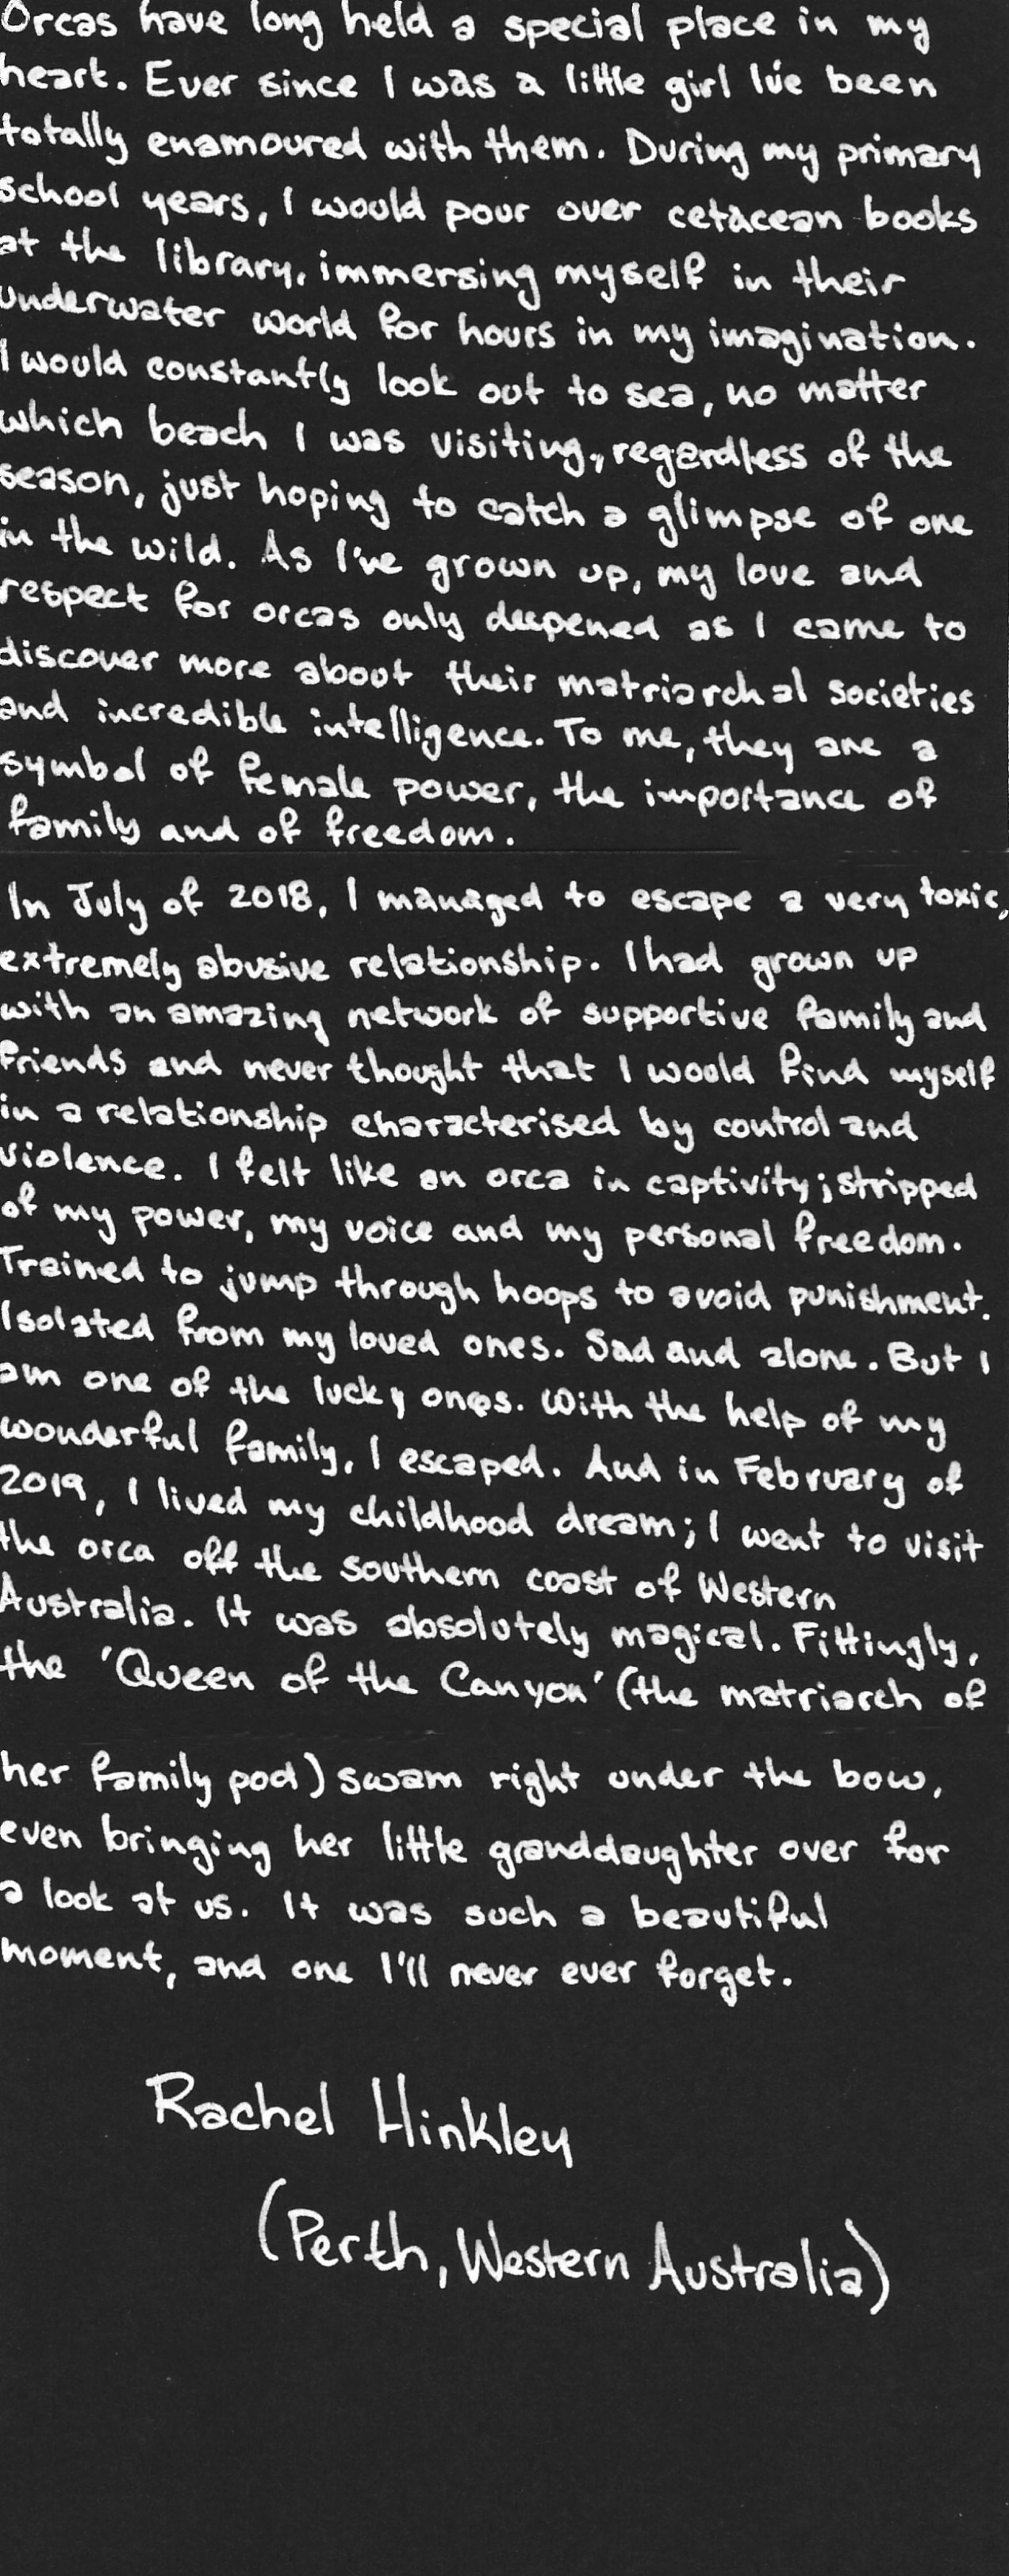 Orcas have long held a special place in my
heart. Ever since I was a little girl I've been
totally enamoured with them. During my primary
school years, I would pour over cetacean books
at the library, immersing myself in their
underwater world for hours in my imagination.
I would constantly look out to sea, no matter
which beach I was visiting, regardless of the
season, just hoping to catch a glimpse of one
in the wild. As I've grown up, my love and
respect for orcas only deepened as I came to
discover more about their matriarchal societies
and incredible intelligence. To me, they are a
symbol of female power, the importance of
family and of freedom.
In July of 2018, I managed to escape a very toxic,
extremely abusive relationship. I had grown up
with an amazing network of supportive family and
friends and never thought that I would find myself
in a relationship characterised by control and
violence. I felt like an orca in captivity; stripped
of my power, my voice and my personal freedom.
Trained to jump through hoops to avoid punishment.
Isolated from my loved ones. Sad and alone. But I
am one of the lucky ones. With the help of my
wonderful family, I escaped. And in February of
2019, I lived my childhood dream; I went to visit
the orca off the southern coast of Western
Australia. It was absolutely magical. Fittingly,
the 'Queen of the Canyon' (the matriarch of
her family pod) swam right under the bow,
even bringing her little granddaughter over for
a look at us. It was such a beautiful
moment, and one I'll never ever forget.
Rachel Hinkley
(Perth, Western Australia)